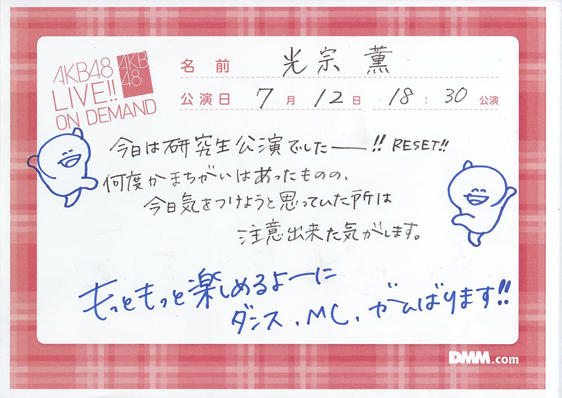 AKB48
LIVE!!
ON DEMAND
AKB
48
名前 光宗 薫
公演日 7月 12日 18:30 公演
今日は研究生公演でしたー!! RESET!!
何度かまちがいはあったものの、
今日気をつけようと思っていた所は
注意出来た気がします。
もっともっと楽しめるよーに
ダンス、MC、がんばります!!
DMM.com